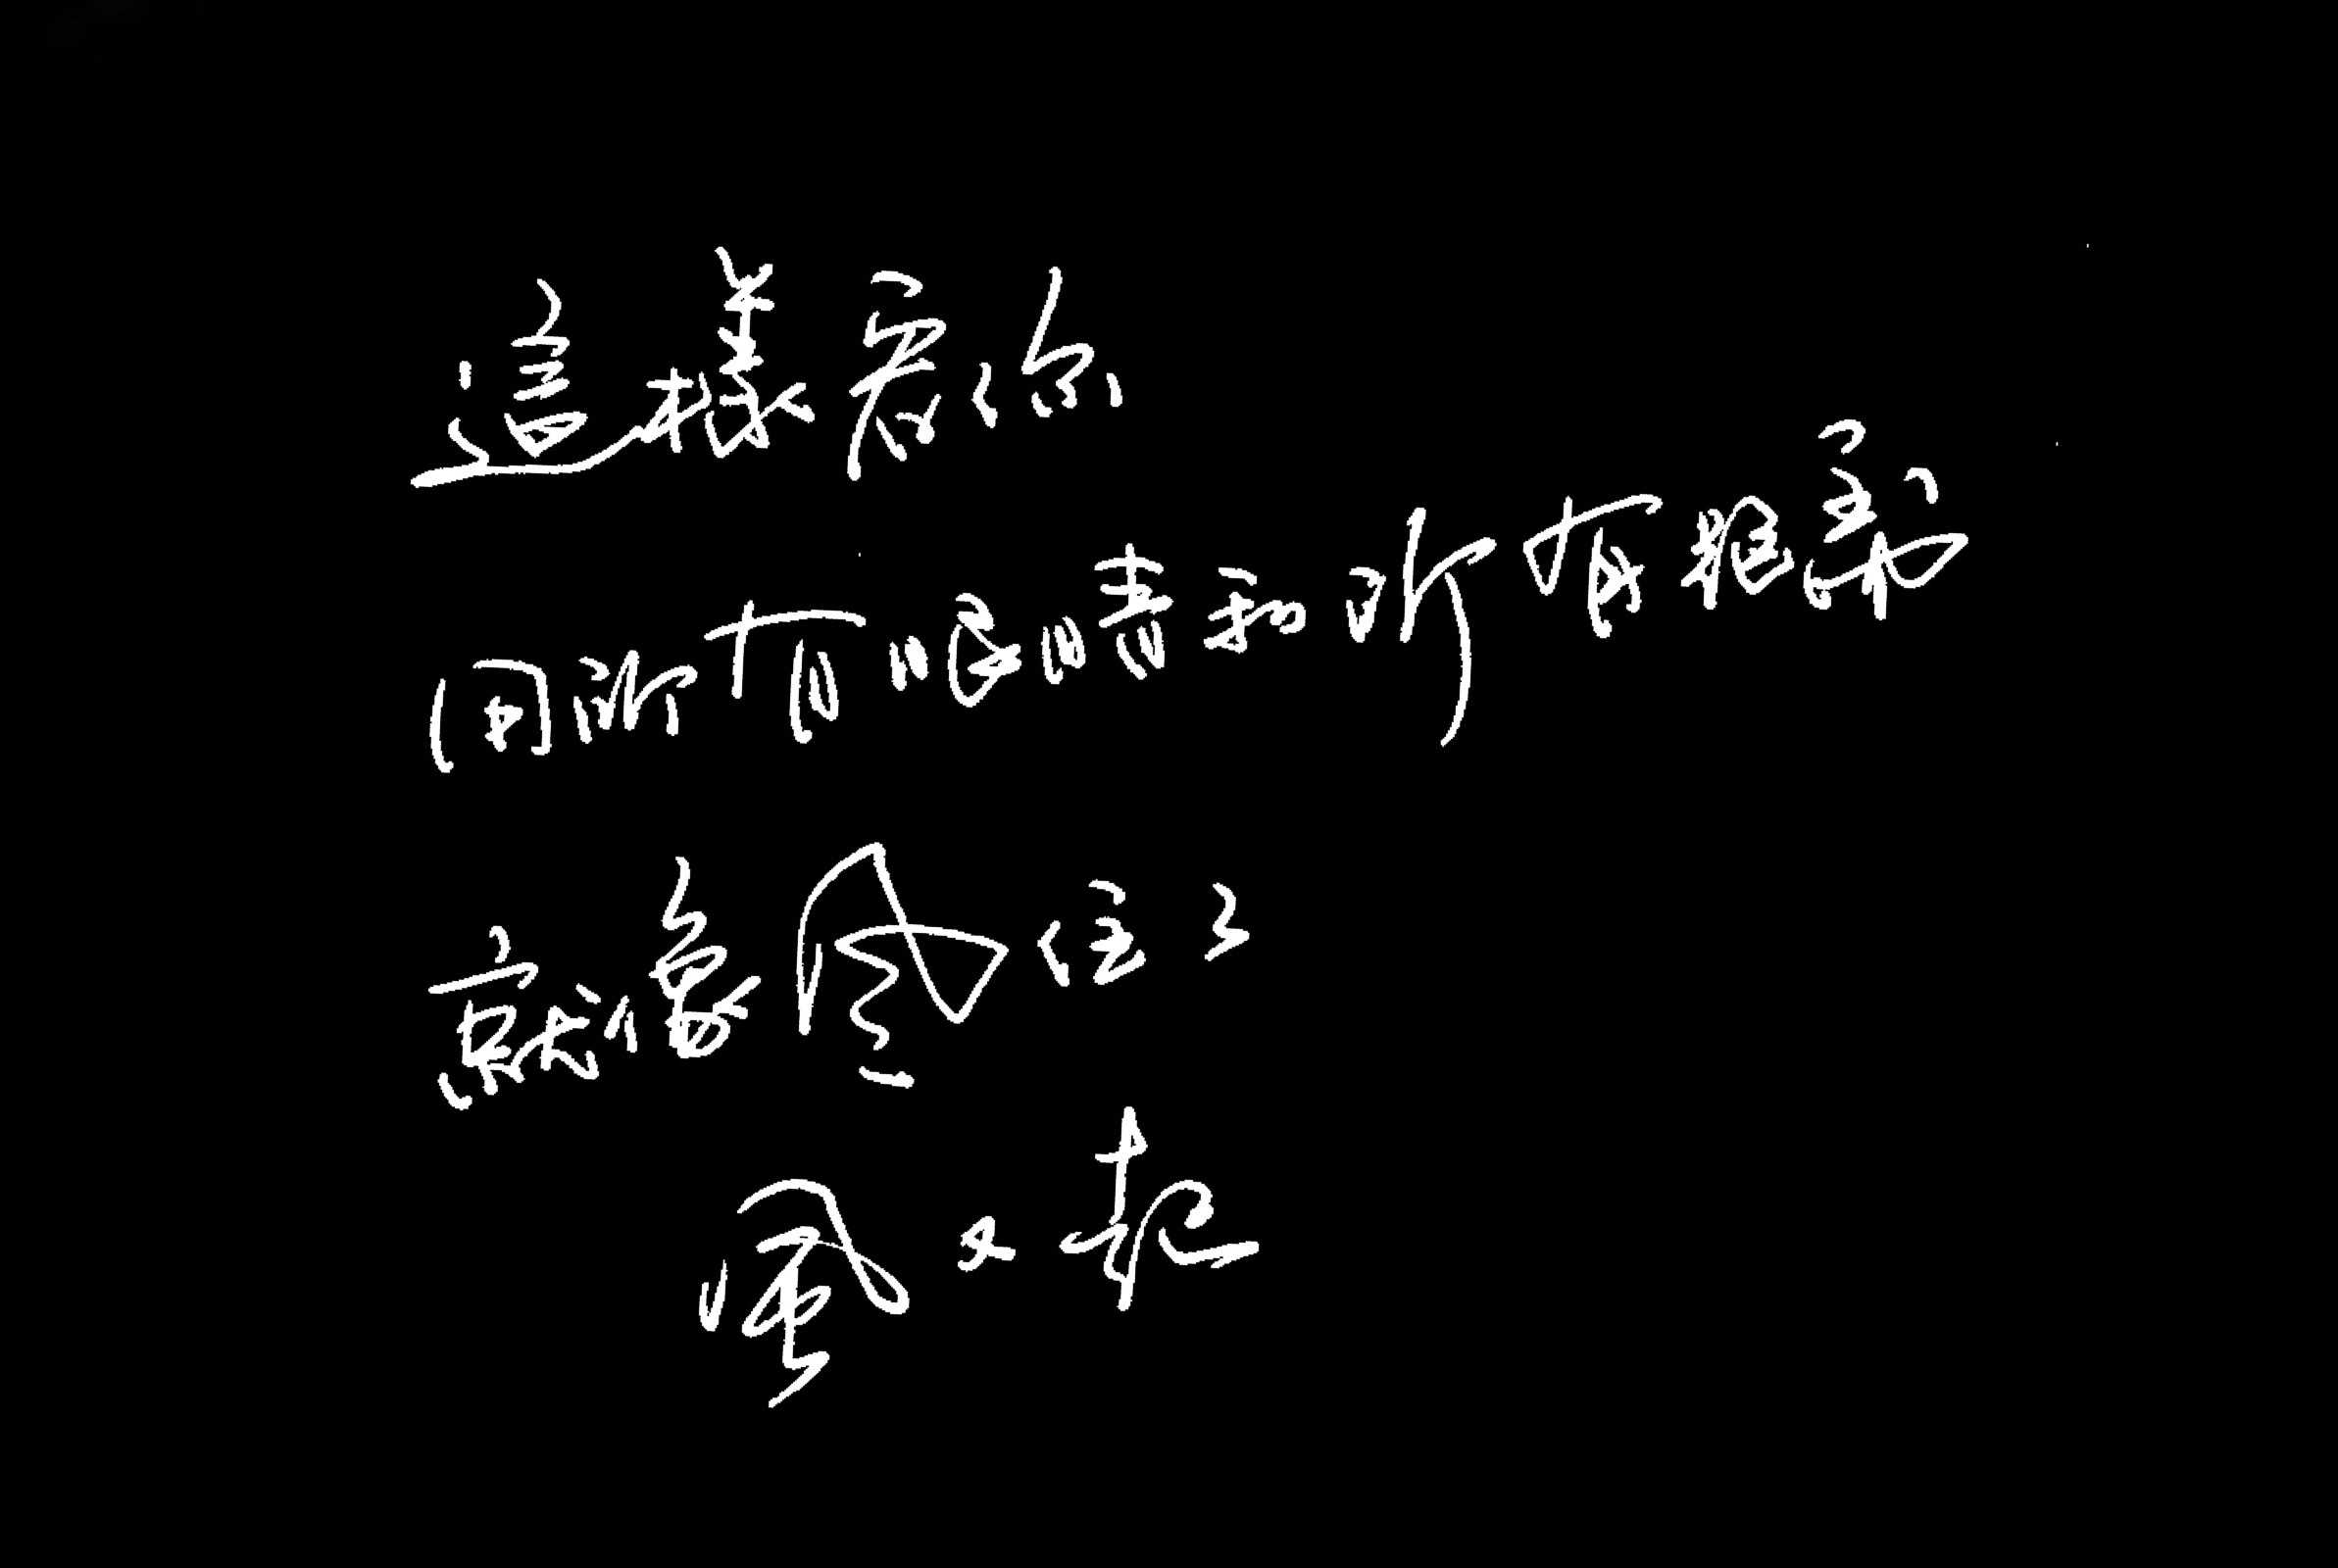 這樣愛你
用所有眼睛和所有距離
就像風住了
風又起